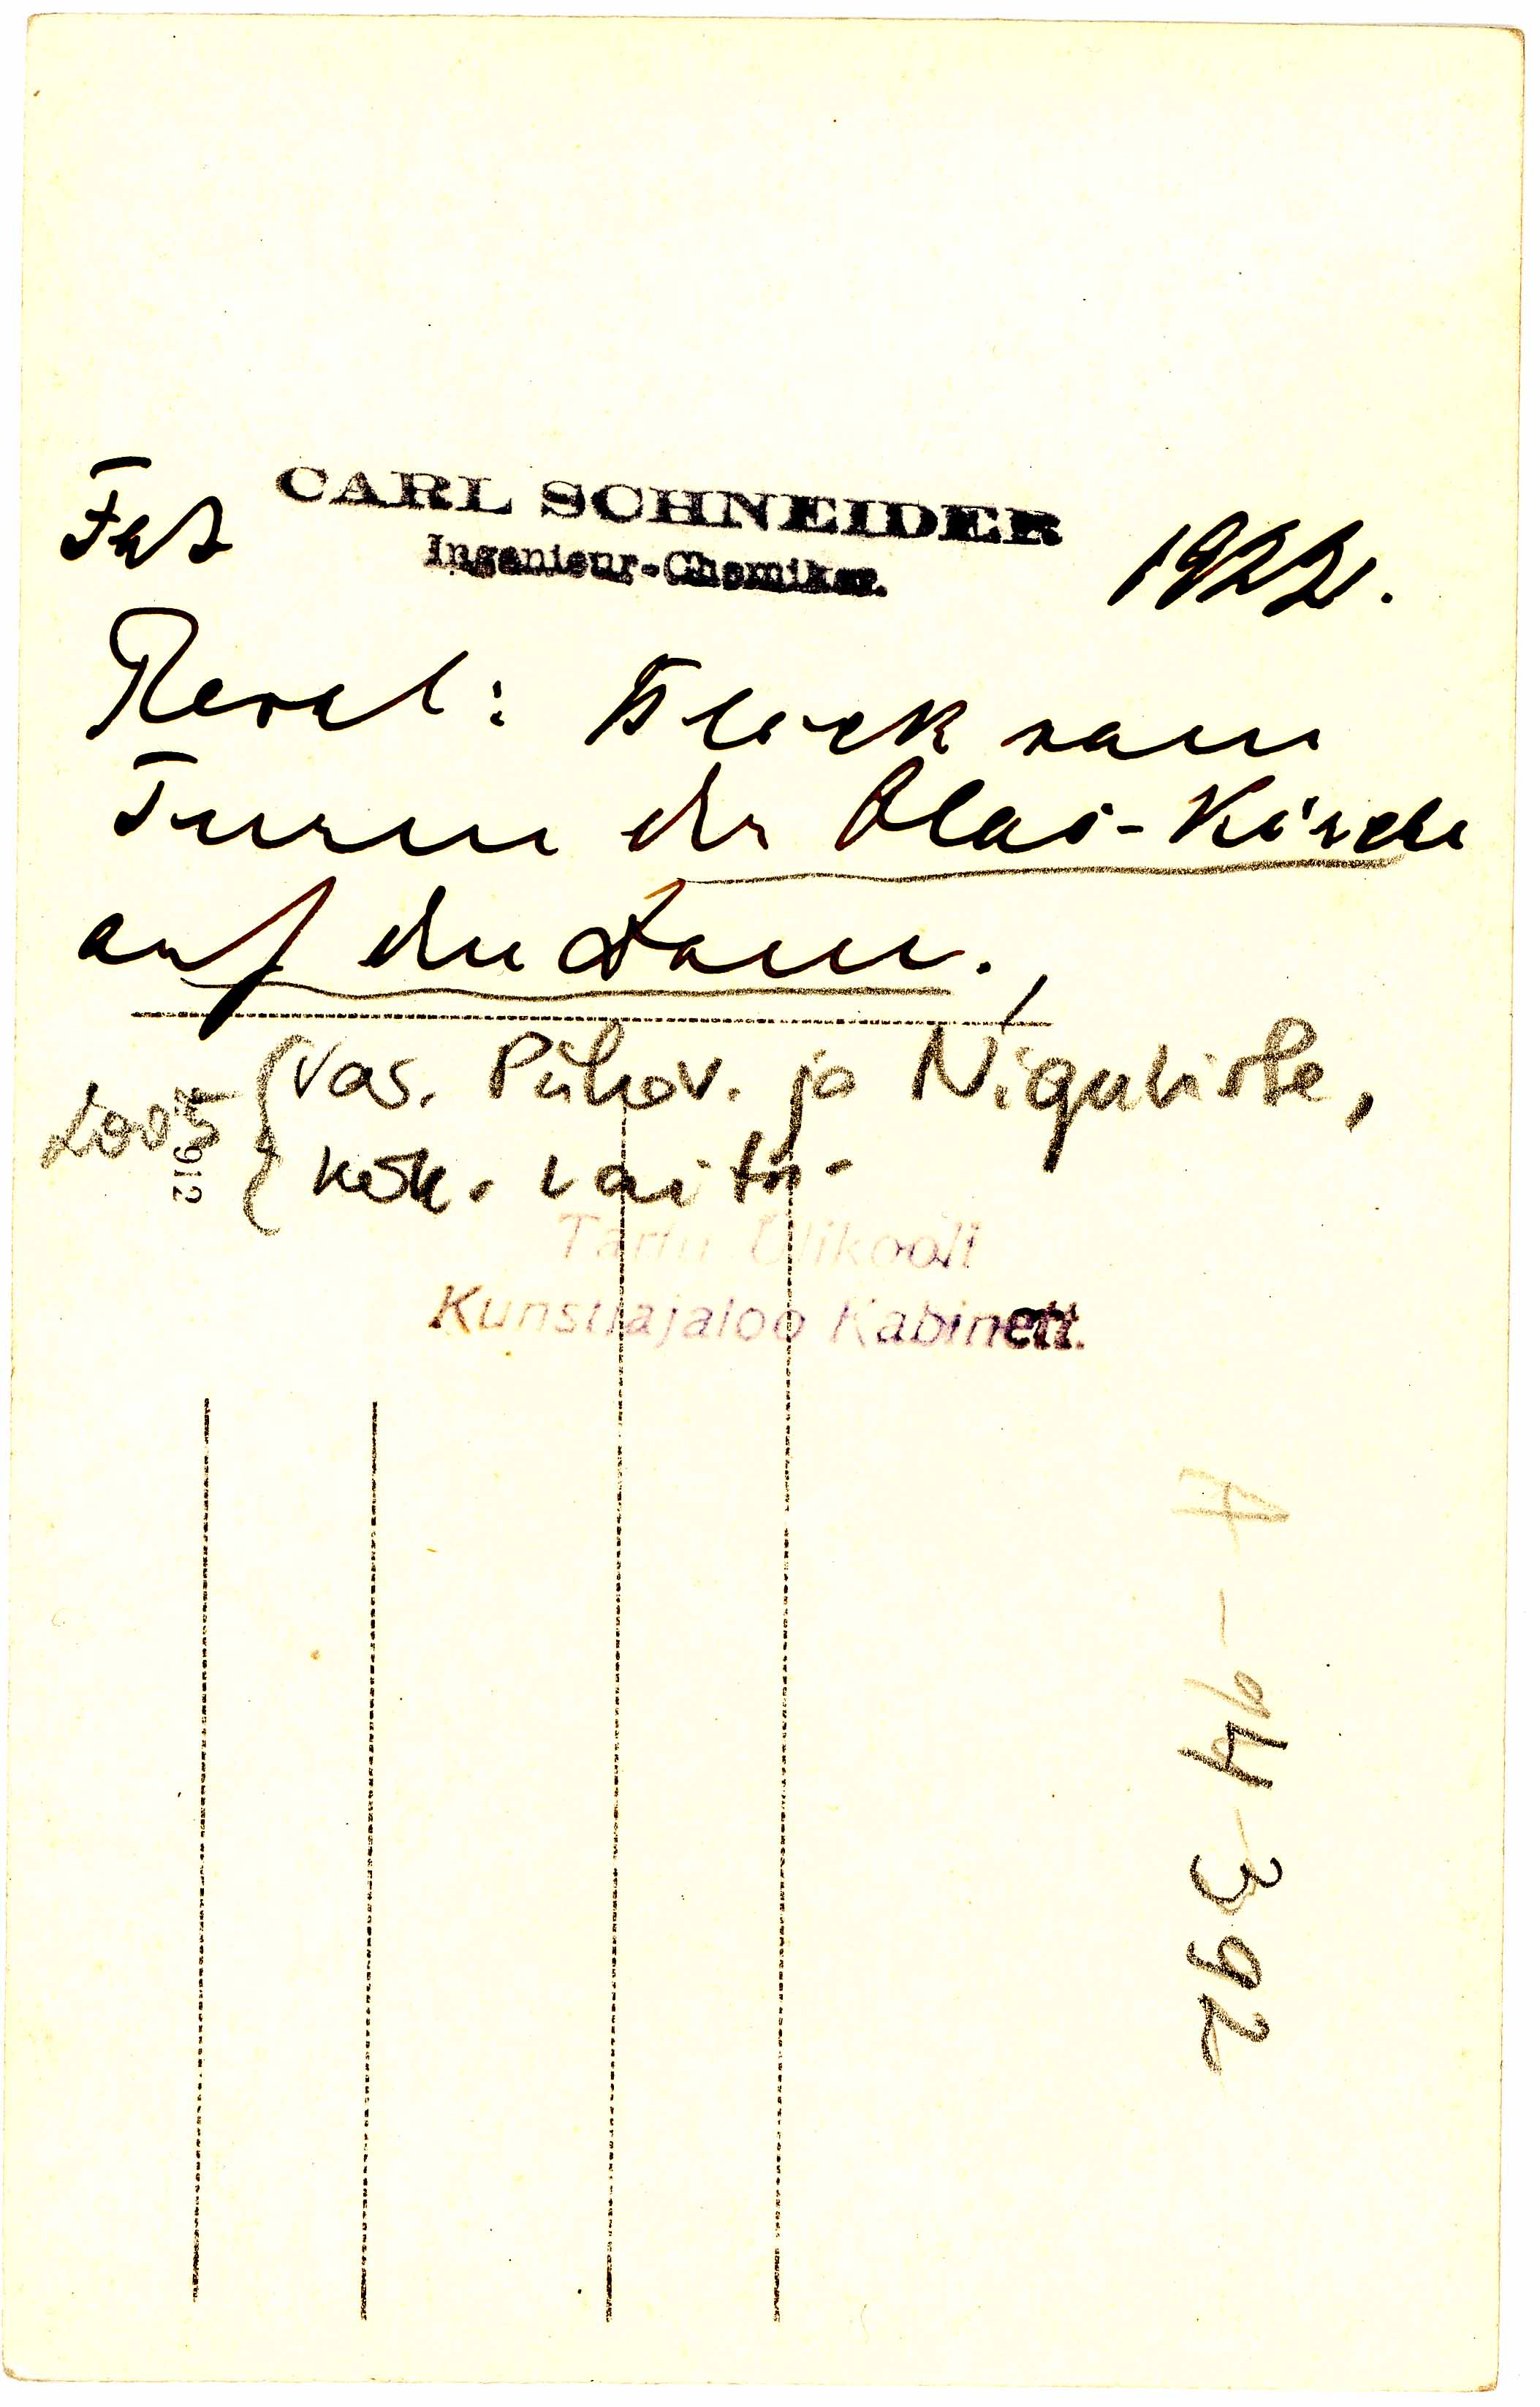 Fot. CARL SCHNEIDER 1922.
Ingenieur-Chemiker.
Reval: Blick vom
Turm der Olai-Kirche
auf den Dom.,
vas. Pühav. ja Niguliste,
kök. vait
912
Tartu Ülikooli
Kunstiajaloo Kabinett.
A-94-392